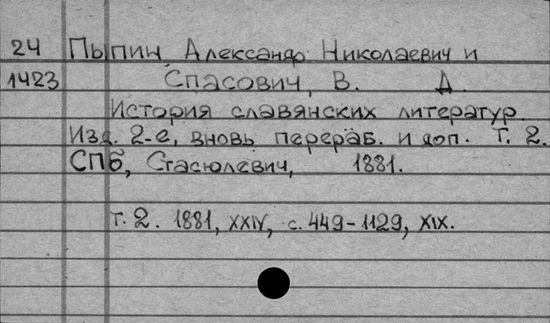 24 Пыпин, Александр Николаевич и
1423 Спасович, В. Д.
История славянских литератур.
Изд. 2-е, вновь перераб. и доп. Т. 2.
СПб, Стасюлевич, 1881.
т. 2. 1881, XXIV, с. 449-1129, XIX.